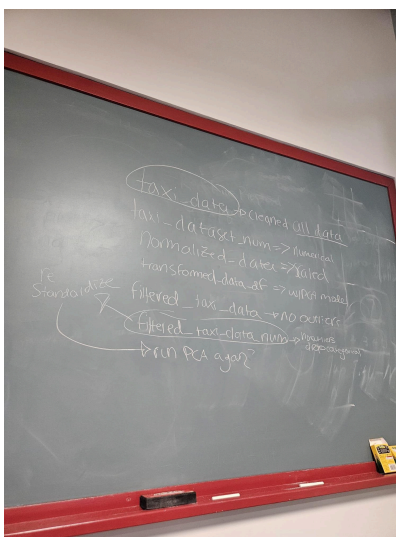 taxi_data → cleaned all data
taxi_dataset_num => numerical
normalized_data => scaled
transformed_data_df => w/PCA
filtered_taxi_data → no outliers
Standardize
filtered_taxi_data_num →
→ run PCA again?